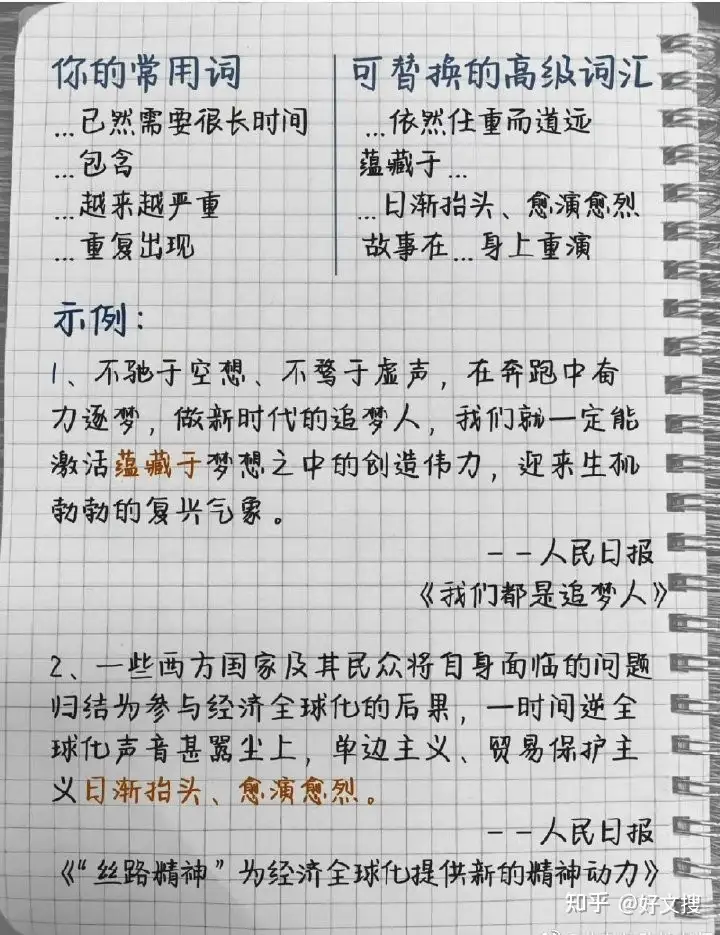 你的常用词 可替换的高级词汇
...已然需要很长时间 ...依然任重而道远
...包含 蕴藏于...
...越来越严重 ...日渐抬头、愈演愈烈
...重复出现 故事在...身上重演
示例：
1、不驰于空想、不骛于虚声，在奔跑中奋
力逐梦，做新时代的追梦人，我们就一定能
激活蕴藏于梦想之中的创造伟力，迎来生机
勃勃的复兴气象。
——人民日报
《我们都是追梦人》
2、一些西方国家及其民众将自身面临的问题
归结为参与经济全球化的后果，一时间逆全
球化声音甚嚣尘上，单边主义、贸易保护主
义日渐抬头、愈演愈烈。
——人民日报
《“丝路精神”为经济全球化提供新的精神动力》
知乎 @好文搜